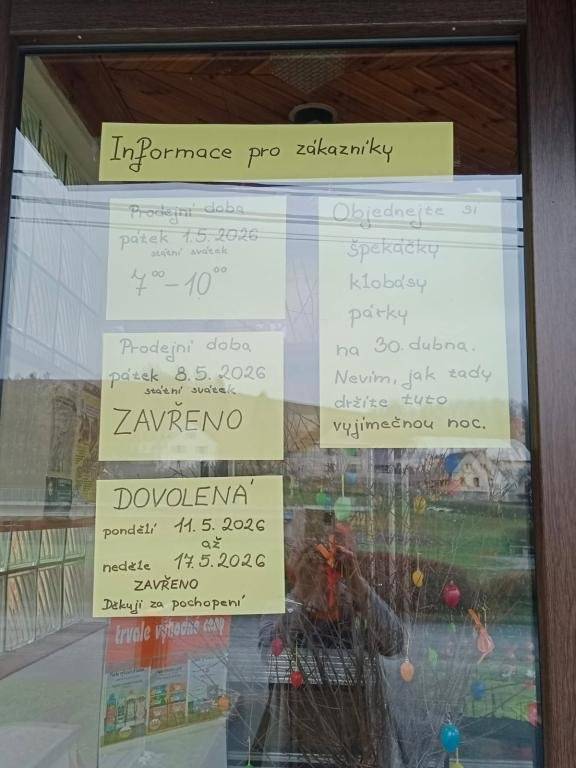 Informace pro zákazníky
Prodejní doba
pátek 1.5.2026
státní svátek
7⁰⁰ - 10⁰⁰
Prodejní doba
pátek 8.5.2026
státní svátek
ZAVŘENO
DOVOLENÁ
pondělí 11.5.2026
až
neděle 17.5.2026
ZAVŘENO
Děkuji za pochopení
Objednejte si
špekáčky
klobásy
párky
na 30. dubna.
Nevím, jak tady
držíte tuto
vyjímečnou noc.
trvale výhodné ceny